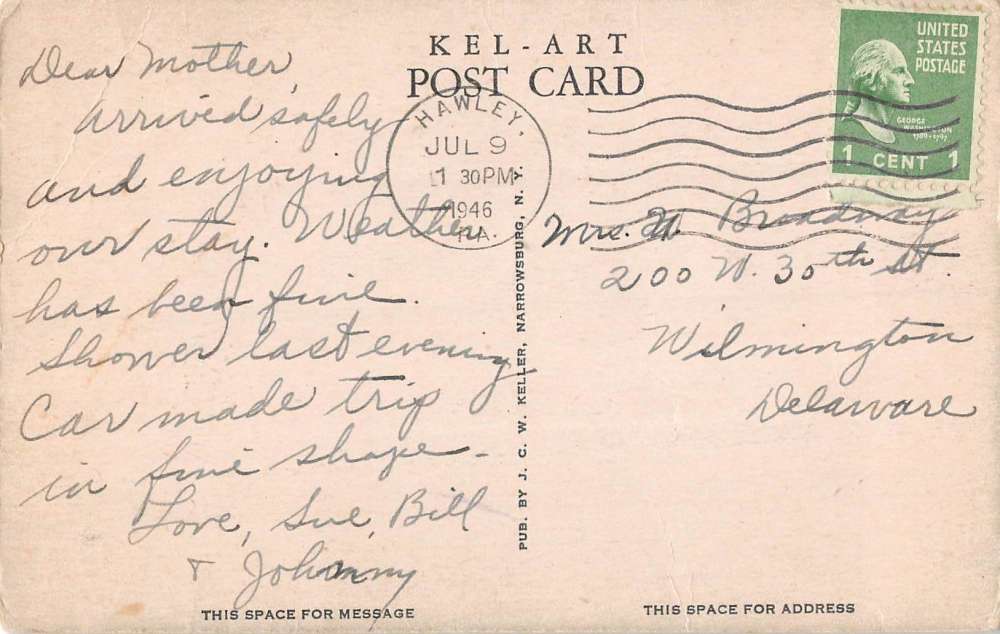 KEL-ART
POST CARD
Dear Mother,
Arrived safely
and enjoying
our stay. Weather
has been fine.
Shower last evening
Car made trip
in fine shape -
Love, Sue, Bill
& Johnny
THIS SPACE FOR MESSAGE
HAWLEY,
JUL 9
1 30 PM
1946
PA.
PUB. BY J. C. W. KELLER, NARROWSBURG, N. Y.
UNITED
STATES
POSTAGE
GEORGE
WASHINGTON
1789-1797
1 CENT 1
Mrs. W. Broadway
200 W. 30th St.
Wilmington
Delaware
THIS SPACE FOR ADDRESS